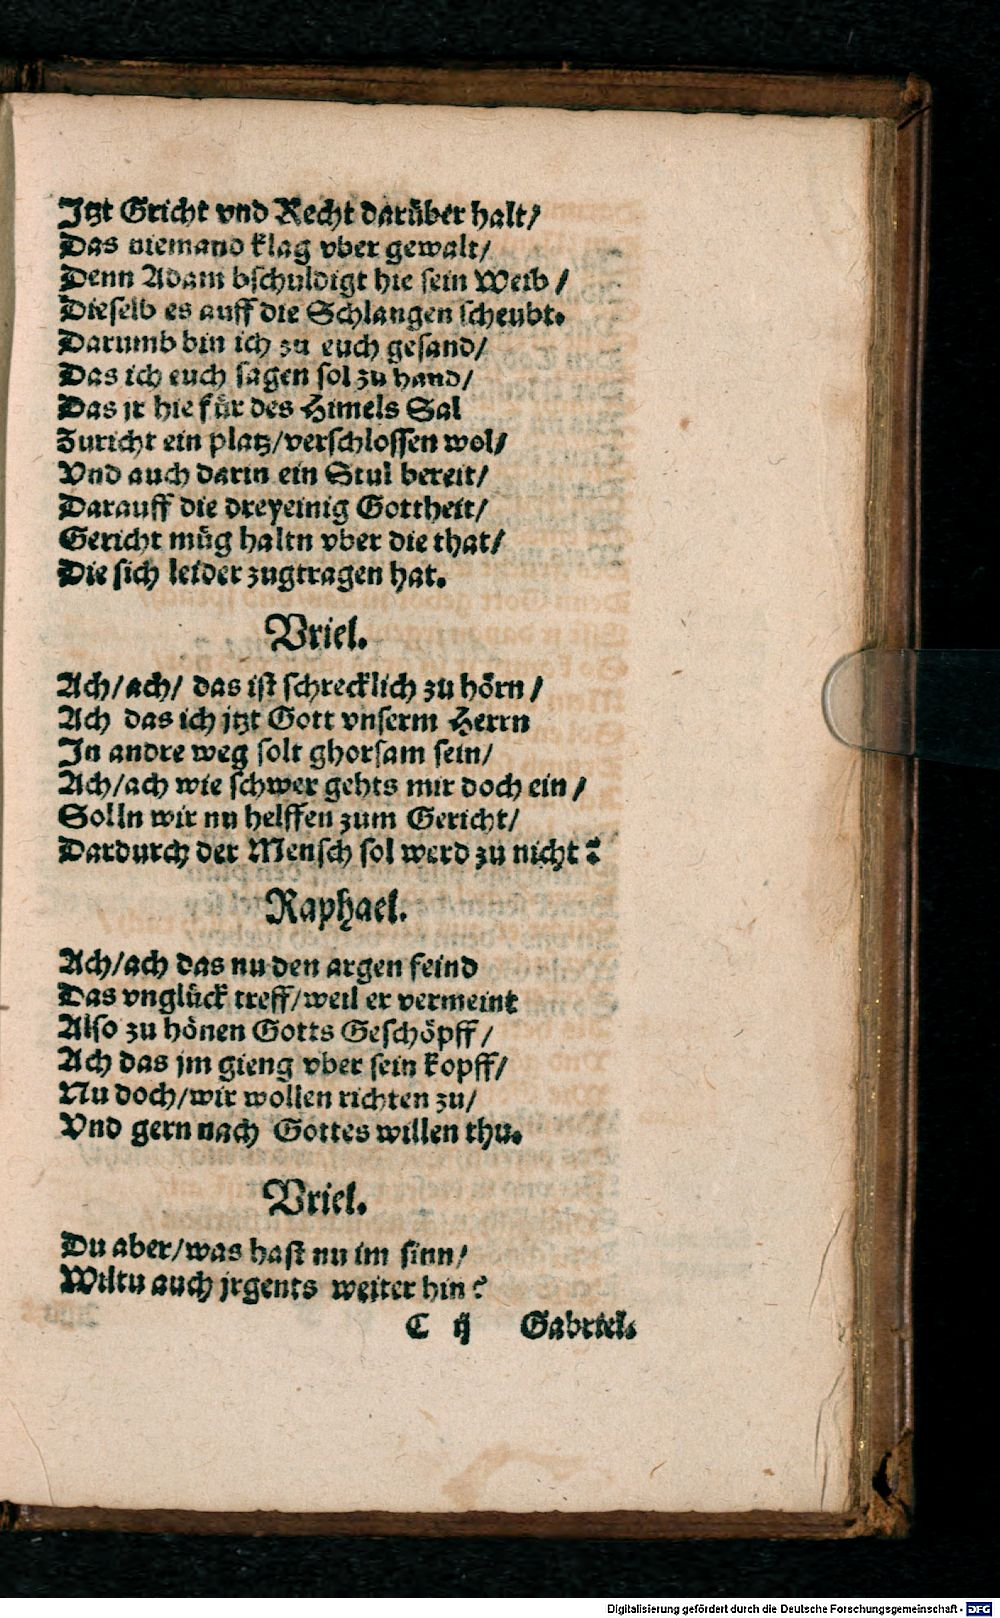 Jtzt Gricht vnd Recht darüber halt/
Das niemand klag vber gewalt/
Denn Adam bschuldigt hie sein Weib/
Dieselb es auff die Schlangen scheubt.
Darumb bin ich zu euch gesand/
Das ich euch sagen sol zu hand/
Das jr hie für des Himels Sal
Zuricht ein platz/verschlossen wol/
Vnd auch darin ein Stul bereit/
Darauff die dreyeinig Gottheit/
Gericht müg haltn vber die that/
Die sich leider zugtragen hat.
Vriel.
Ach/ach/ das ist schrecklich zu hörn/
Ach das ich jtzt Gott vnserm Herrn
Jn andre weg solt ghorsam sein/
Ach/ach wie schwer gehts mir doch ein/
Solln wir nu helffen zum Gericht/
Dardurch der Mensch sol werd zu nicht?
Raphael.
Ach/ach das nu den argen feind
Das vnglück treff/weil er vermeint
Also zu hönen Gotts Geschöpff/
Ach das jm gieng vber sein kopff/
Nu doch/wir wollen richten zu/
Vnd gern nach Gottes willen thu.
Vriel.
Du aber/was hast nu im sinn/
Wiltu auch jrgents weiter hin?
C ij Gabriel.
Digitalisierung gefördert durch die Deutsche Forschungsgemeinschaft - DFG